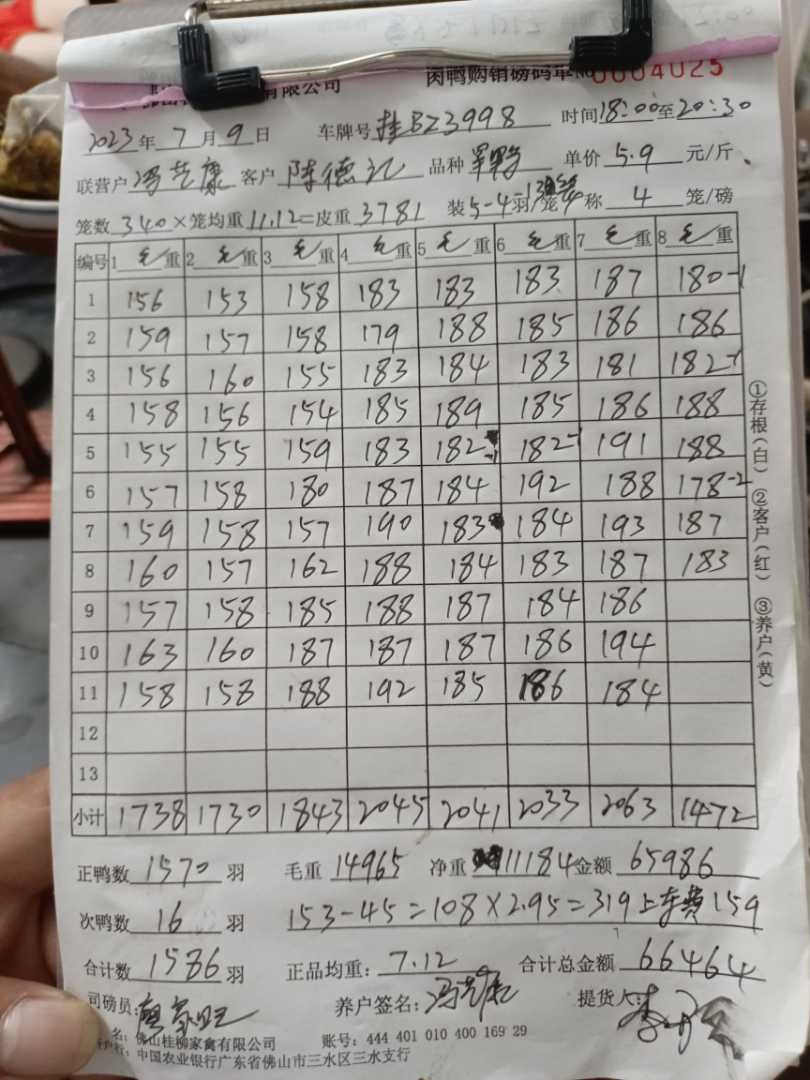 有限公司 肉鸭购销磅码单 No 0004025
2023年7月9日 车牌号桂BZ3998 时间18:00至20:30
联营户冯艺康 客户陈德记 品种 单价5.9元/斤
笼数340×笼均重11.12=皮重3781 装5-4羽/笼 称4笼/磅
编号 1毛重 2毛重 3毛重 4毛重 5毛重 6毛重 7毛重 8毛重
1 156 153 158 183 183 183 187 180-1
2 159 157 158 179 188 185 186 186
3 156 160 155 183 184 183 181 182-1
4 158 156 154 185 189 185 186 188
5 155 155 159 183 182-1 182-1 191 188
6 157 158 180 187 184 192 188 178-2
7 159 158 157 190 183 184 193 187
8 160 157 162 188 184 183 187 183
9 157 158 185 188 187 184 186
10 163 160 187 187 187 186 194
11 158 158 188 192 185 186 184
12
13
小计 1738 1730 1843 2045 2041 2033 2063 1472
正鸭数1570羽 毛重14965 净重11184 金额65986
次鸭数16羽 153-45=108×2.95=319上车费159
合计数1586羽 正品均重:7.12 合计总金额66464
司磅员: 养户签名:冯艺康 提货人:
名:佛山桂柳家禽有限公司 账号:444 401 010 400 169 29
行:中国农业银行广东省佛山市三水区三水支行
①存根(白) ②客户(红) ③养户(黄)